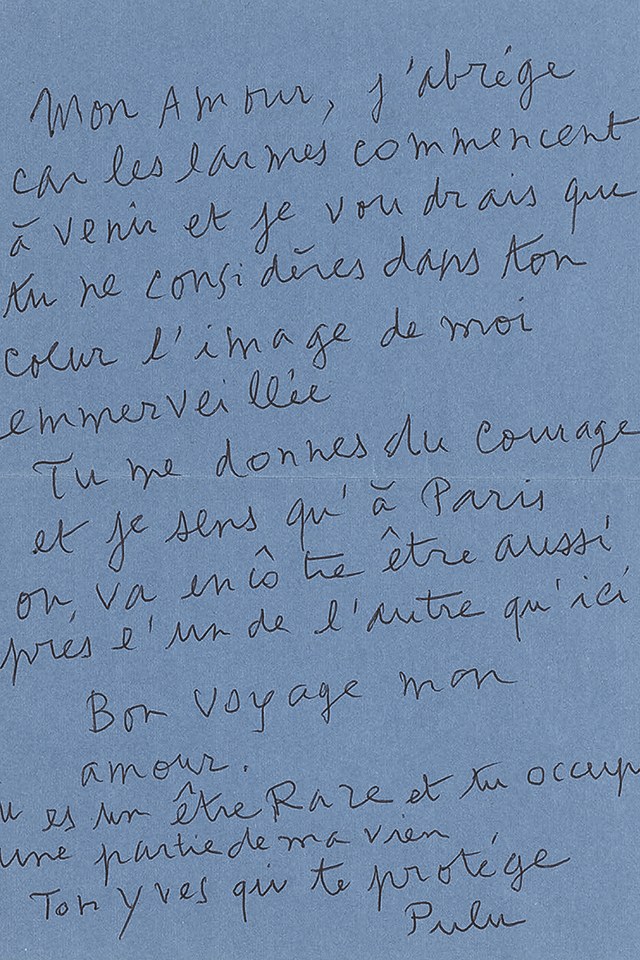 Mon Amour, j'abrége
car les larmes commencent
à venir et je voudrais que
tu ne considères dans ton
coeur l'image de moi
emmerveillée
Tu me donnes du courage
et je sens qu'à Paris
on va encôtre être aussi
près l'un de l'autre qu'ici
Bon voyage mon
amour.
u es un être Rare et tu occup
une partie de ma vien
Ton Yves qui te protége
Pulu